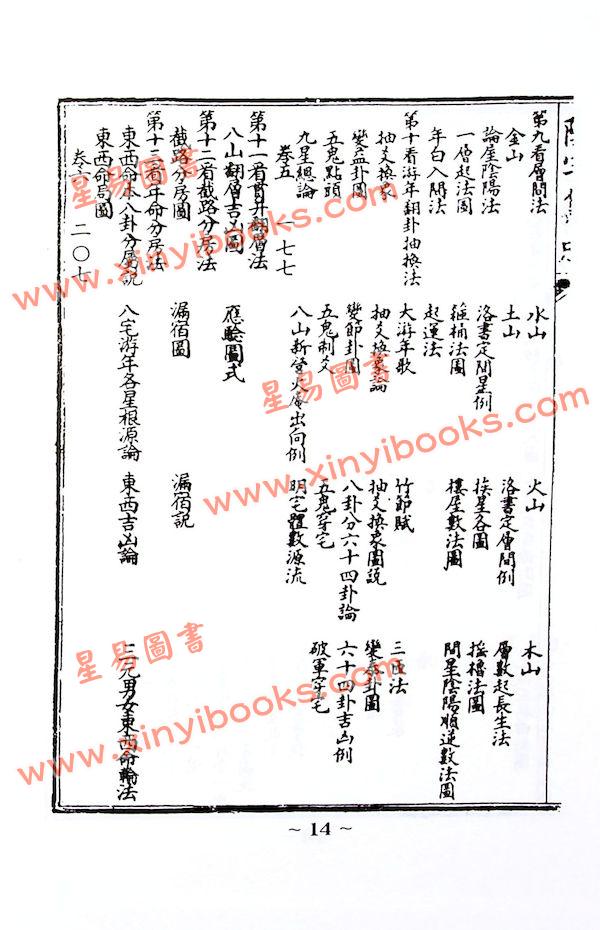 第九看層間法
水山 火山 木山
金山 土山 洛書定層間例 層數起長生法
論屋陰陽法 洛書定間星例 挨星各圖 搖櫓法圖
一層起法圖 箍桶法圖 樓屋數法圖 間星陰陽順逆數法圖
年白入間法 起運法
第十看游年翻卦抽換法
大游年歌 竹節賦 三匝法
抽爻換象 抽爻換象論 抽爻換象圖說 變泰卦圖
變益卦圖 變節卦圖 八卦分六十四卦論 六十四卦吉凶例
五鬼點頭 五鬼制爻 五鬼穿宅 破軍穿宅
九星總論 八山新登火庵出向例 明宅體數源流
卷五 一七七
第十一看貫井翻層法
八山翻層吉凶圖 應驗圖式
第十二看截路分房法
截路分房圖 漏宿圖 漏宿說
第十三看年命分房法
東西命本八卦分房說 八宅游年各星根源論 東西吉凶論 三元男女東西命輪法
東西命局圖
卷六 二〇七
~ 14 ~
星易圖書
www.xinyibooks.com
星易圖書
www.xinyibooks.com
星易圖書
www.xinyibooks.com